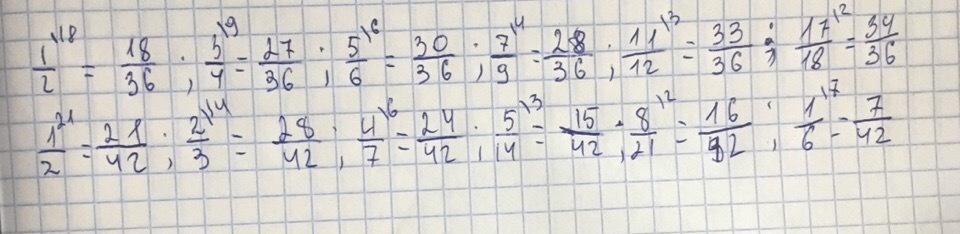 1/2\18 = 18/36 ; 3/4\9 = 27/36 ; 5/6\6 = 30/36 ; 7/9\4 = 28/36 ; 11/12\3 = 33/36 ; 17/18\2 = 34/36
1/2\21 = 21/42 ; 2/3\14 = 28/42 ; 4/7\6 = 24/42 ; 5/14\3 = 15/42 ; 8/21\2 = 16/42 ; 1/6\7 = 7/42